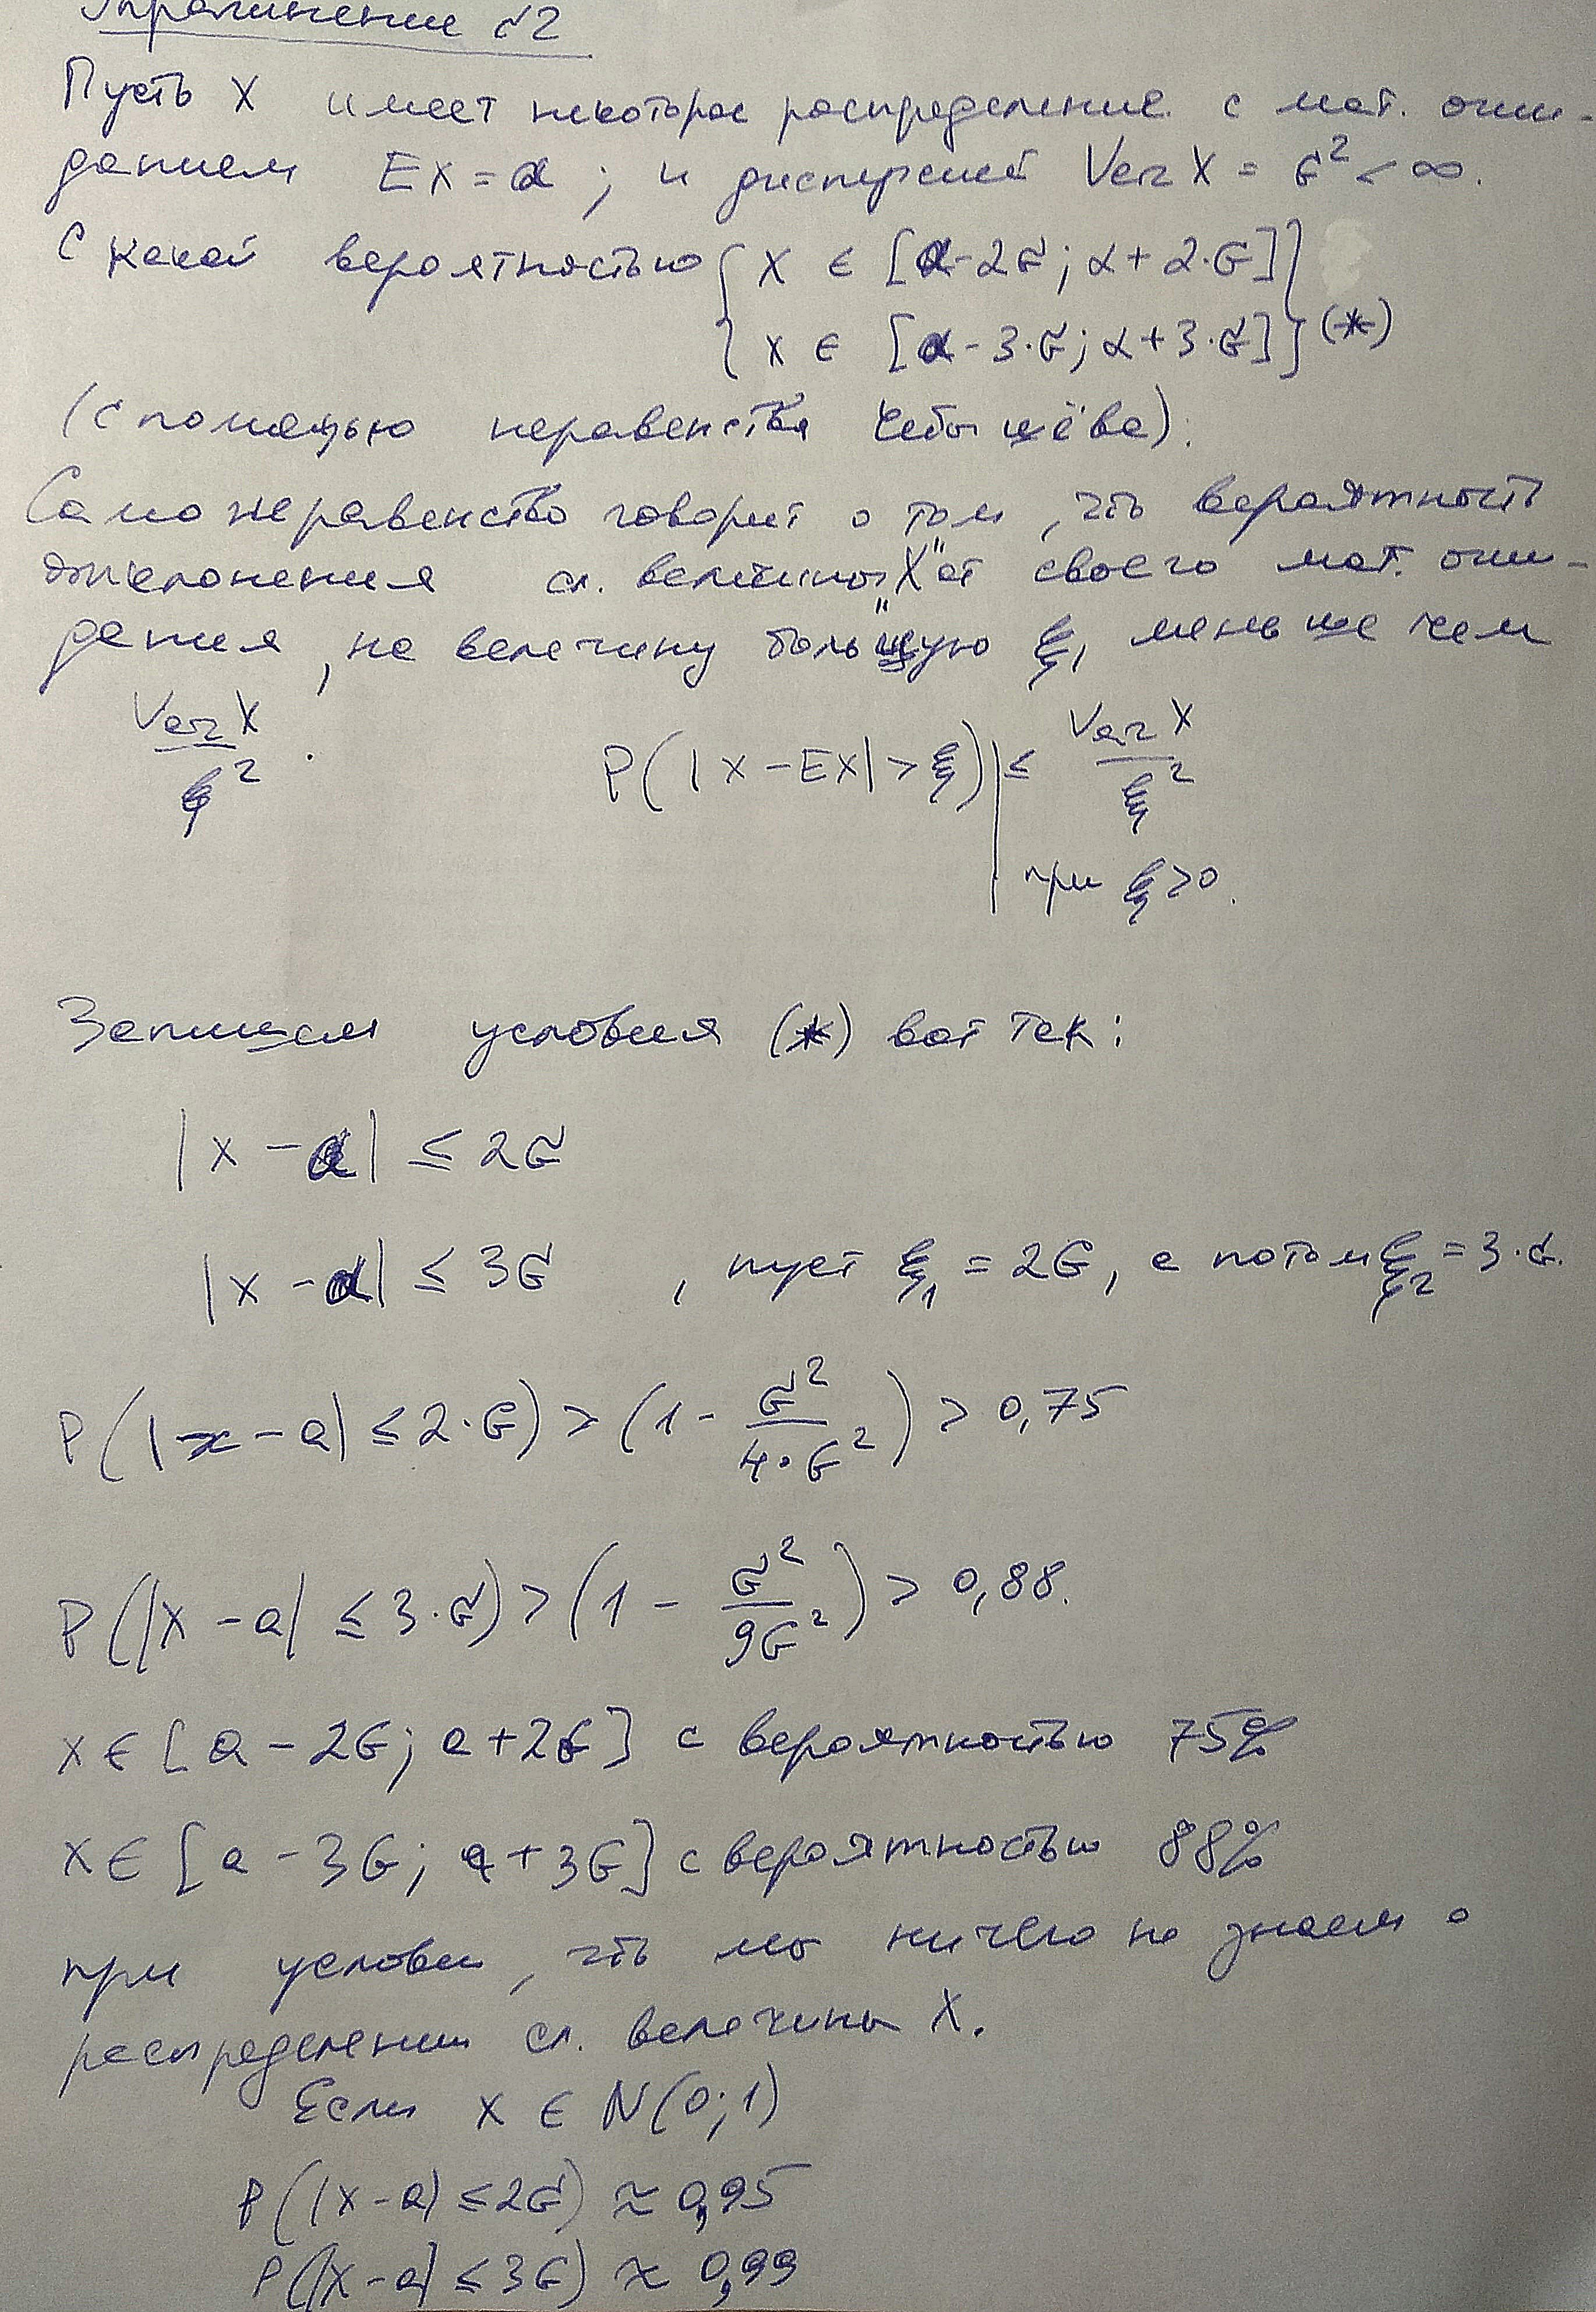 Упражнение №2
Пусть X имеет некоторое распределение с мат. ожи-
данием EX = a ; и дисперсией Var X = σ² < ∞.
С какой вероятностью { X ∈ [a - 2σ; a + 2·σ] }
{ X ∈ [a - 3·σ; a + 3·σ] } (*)
(с помощью неравенства Чебышёва).
Само неравенство говорит о том, что вероятность
отклонения сл. величины "X" от своего мат. ожи-
дания, на величину большую ξ, меньше чем
Var X / ξ² . P(|X - EX| > ξ) ≤ Var X / ξ²
при ξ > 0.
Запишем условия (*) вот так:
|X - a| ≤ 2σ
|X - a| ≤ 3σ , пуст ξ₁ = 2σ, а потом ξ₂ = 3·σ.
P(|x - a| ≤ 2·σ) > (1 - σ² / 4·σ²) > 0,75
P(|X - a| ≤ 3·σ) > (1 - σ² / 9σ²) > 0,88.
X ∈ [a - 2σ; a + 2σ] с вероятностью 75%
X ∈ [a - 3σ; a + 3σ] с вероятностью 88%
при условии, что мы ничего не знаем о
распределении сл. величины X.
Если X ∈ N(0; 1)
P(|X - a| ≤ 2σ) ≈ 0,95
P(|X - a| ≤ 3σ) ≈ 0,99